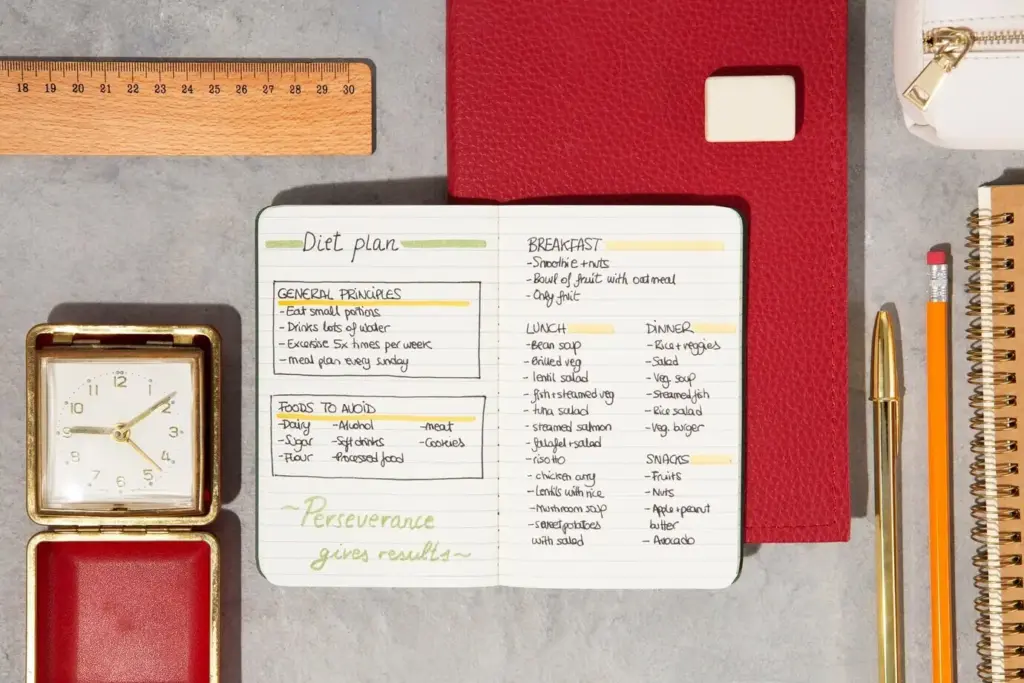 18 19 20 21 22 23 24 25 26 27 28 29 30
Diet plan
GENERAL PRINCIPLES
-Eat small portions
-Drinks lots of water
-Excersise 5x times per week
-meal plan every sunday
FOODS TO AVOID
-Dairy -Alcohol -meat
-Sugar -Soft drinks -Cookies
-Flour -Processed food
~Perseverance
gives results~
BREAKFAST
-Smoothie + nuts
-Bowl of fruit with oatmeal
-Only fruit
LUNCH
-Bean soup
-Grilled veg
-lentil salad
-fish + steamed veg
-tuna salad
-steamed salmon
-falafel + salad
-risotto
-chicken curry
-Lentils with rice
-Mushroom soup
-sweet potatoes
with salad
DINNER
-Rice + veggies
-Salad
-Veg soup
-Steamed fish
-Rice salad
-Veg. burger
SNACKS
-Fruits
-Nuts
-Apple + peanut
butter
-Avocado
12
11 1
10 2
9 3
8 4
7 5
6